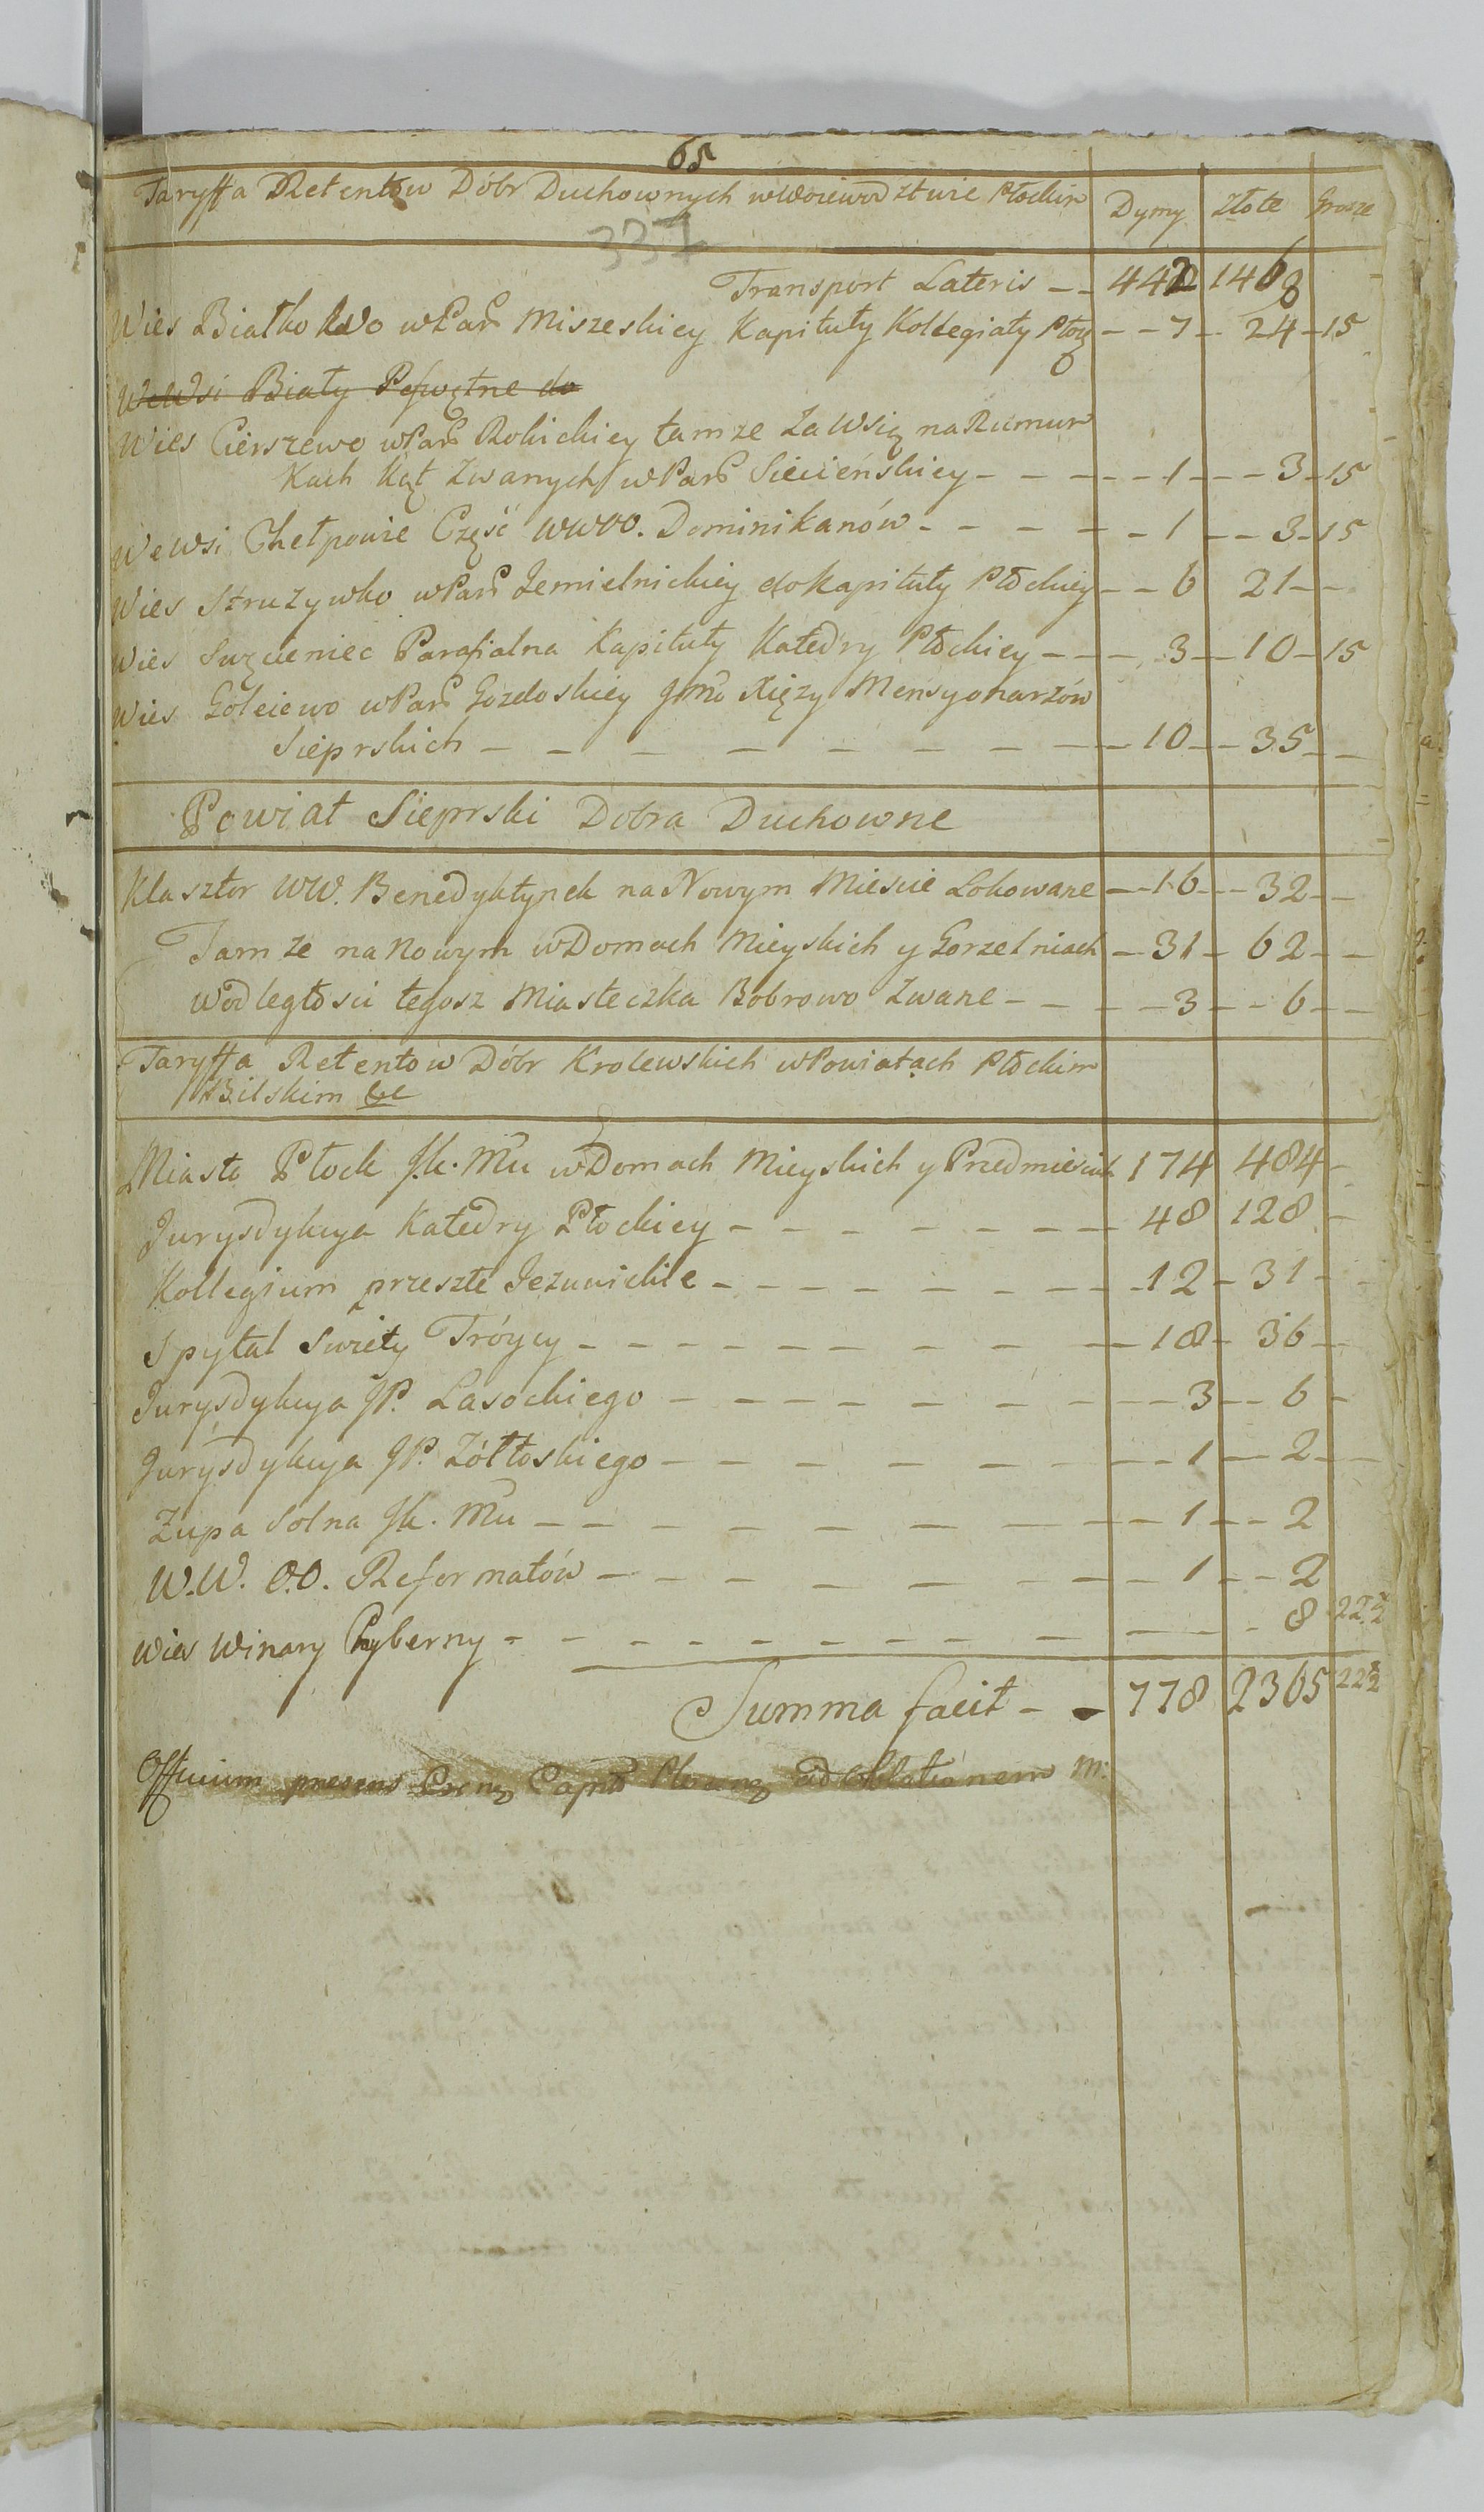 65
Taryffa Retentow Dóbr Duchownych w Woiewodztwie Płockim Dymy Złote Grosze
337
Transport Lateris — 442 1468
Wies Białkowo w Par Miszeskiey Kapituły Kollegiaty — 7 — 24 — 15
We Wsi Biały do
Wies Cierszewo w Par Rokickiey tamze za Wsią na Rumun
kach Kąt Zwanych w Par Siecieńskiey — 1 — 3 — 15
We wsi Chełpowie Część WWOO. Dominikanów — 1 — 3 — 15
Wies Struzywko w Par Jemielnickiey do Kapituły Płockiey — 6 21 —
Wies Suzcieniec Parafialna Kapituły Katedry Płockiey — 3 — 10 — 15
Wies Goleiewo w Par Gozdoskiey Xięzy Mensyonarzów
Sieprskich — 10 — 35 —
Powiat Sieprski Dobra Duchowne
Klasztor WW. Benedyktynek na Nowym Miescie Lokowane — 16 — 32 —
Tamze na Nowym w Domach Mieyskich y Gorzelniach — 31 — 62 —
W odległosci tegosz Miasteczka Bobrowo Zwane — 3 — 6 —
Taryffa Retentow Dóbr Krolewskich w Powiatach Płockim
Bilskim &c
Miasto Płock Jk. Mci w Domach Mieyskich y Przedmiesciach 174 484 —
Jurysdykcya Katedry Płockiey — 48 128 —
Kollegium przeszłe Jezuickie — 12 — 31 —
Spytal Swiety Tróycy — 18 — 36 —
Jurysdykcya JP. Lasockiego — 3 — 6 —
Jurysdykcya JP. Zółtoskiego — 1 — 2 —
Zupa Solna Jk. Mci — 1 — 2
W.W. O.O. Reformatów — 1 — 2
Wies Winary Chyberny — 8 22½
Summa facit — 778 2365 22½
Officium praesens ad Oblationem